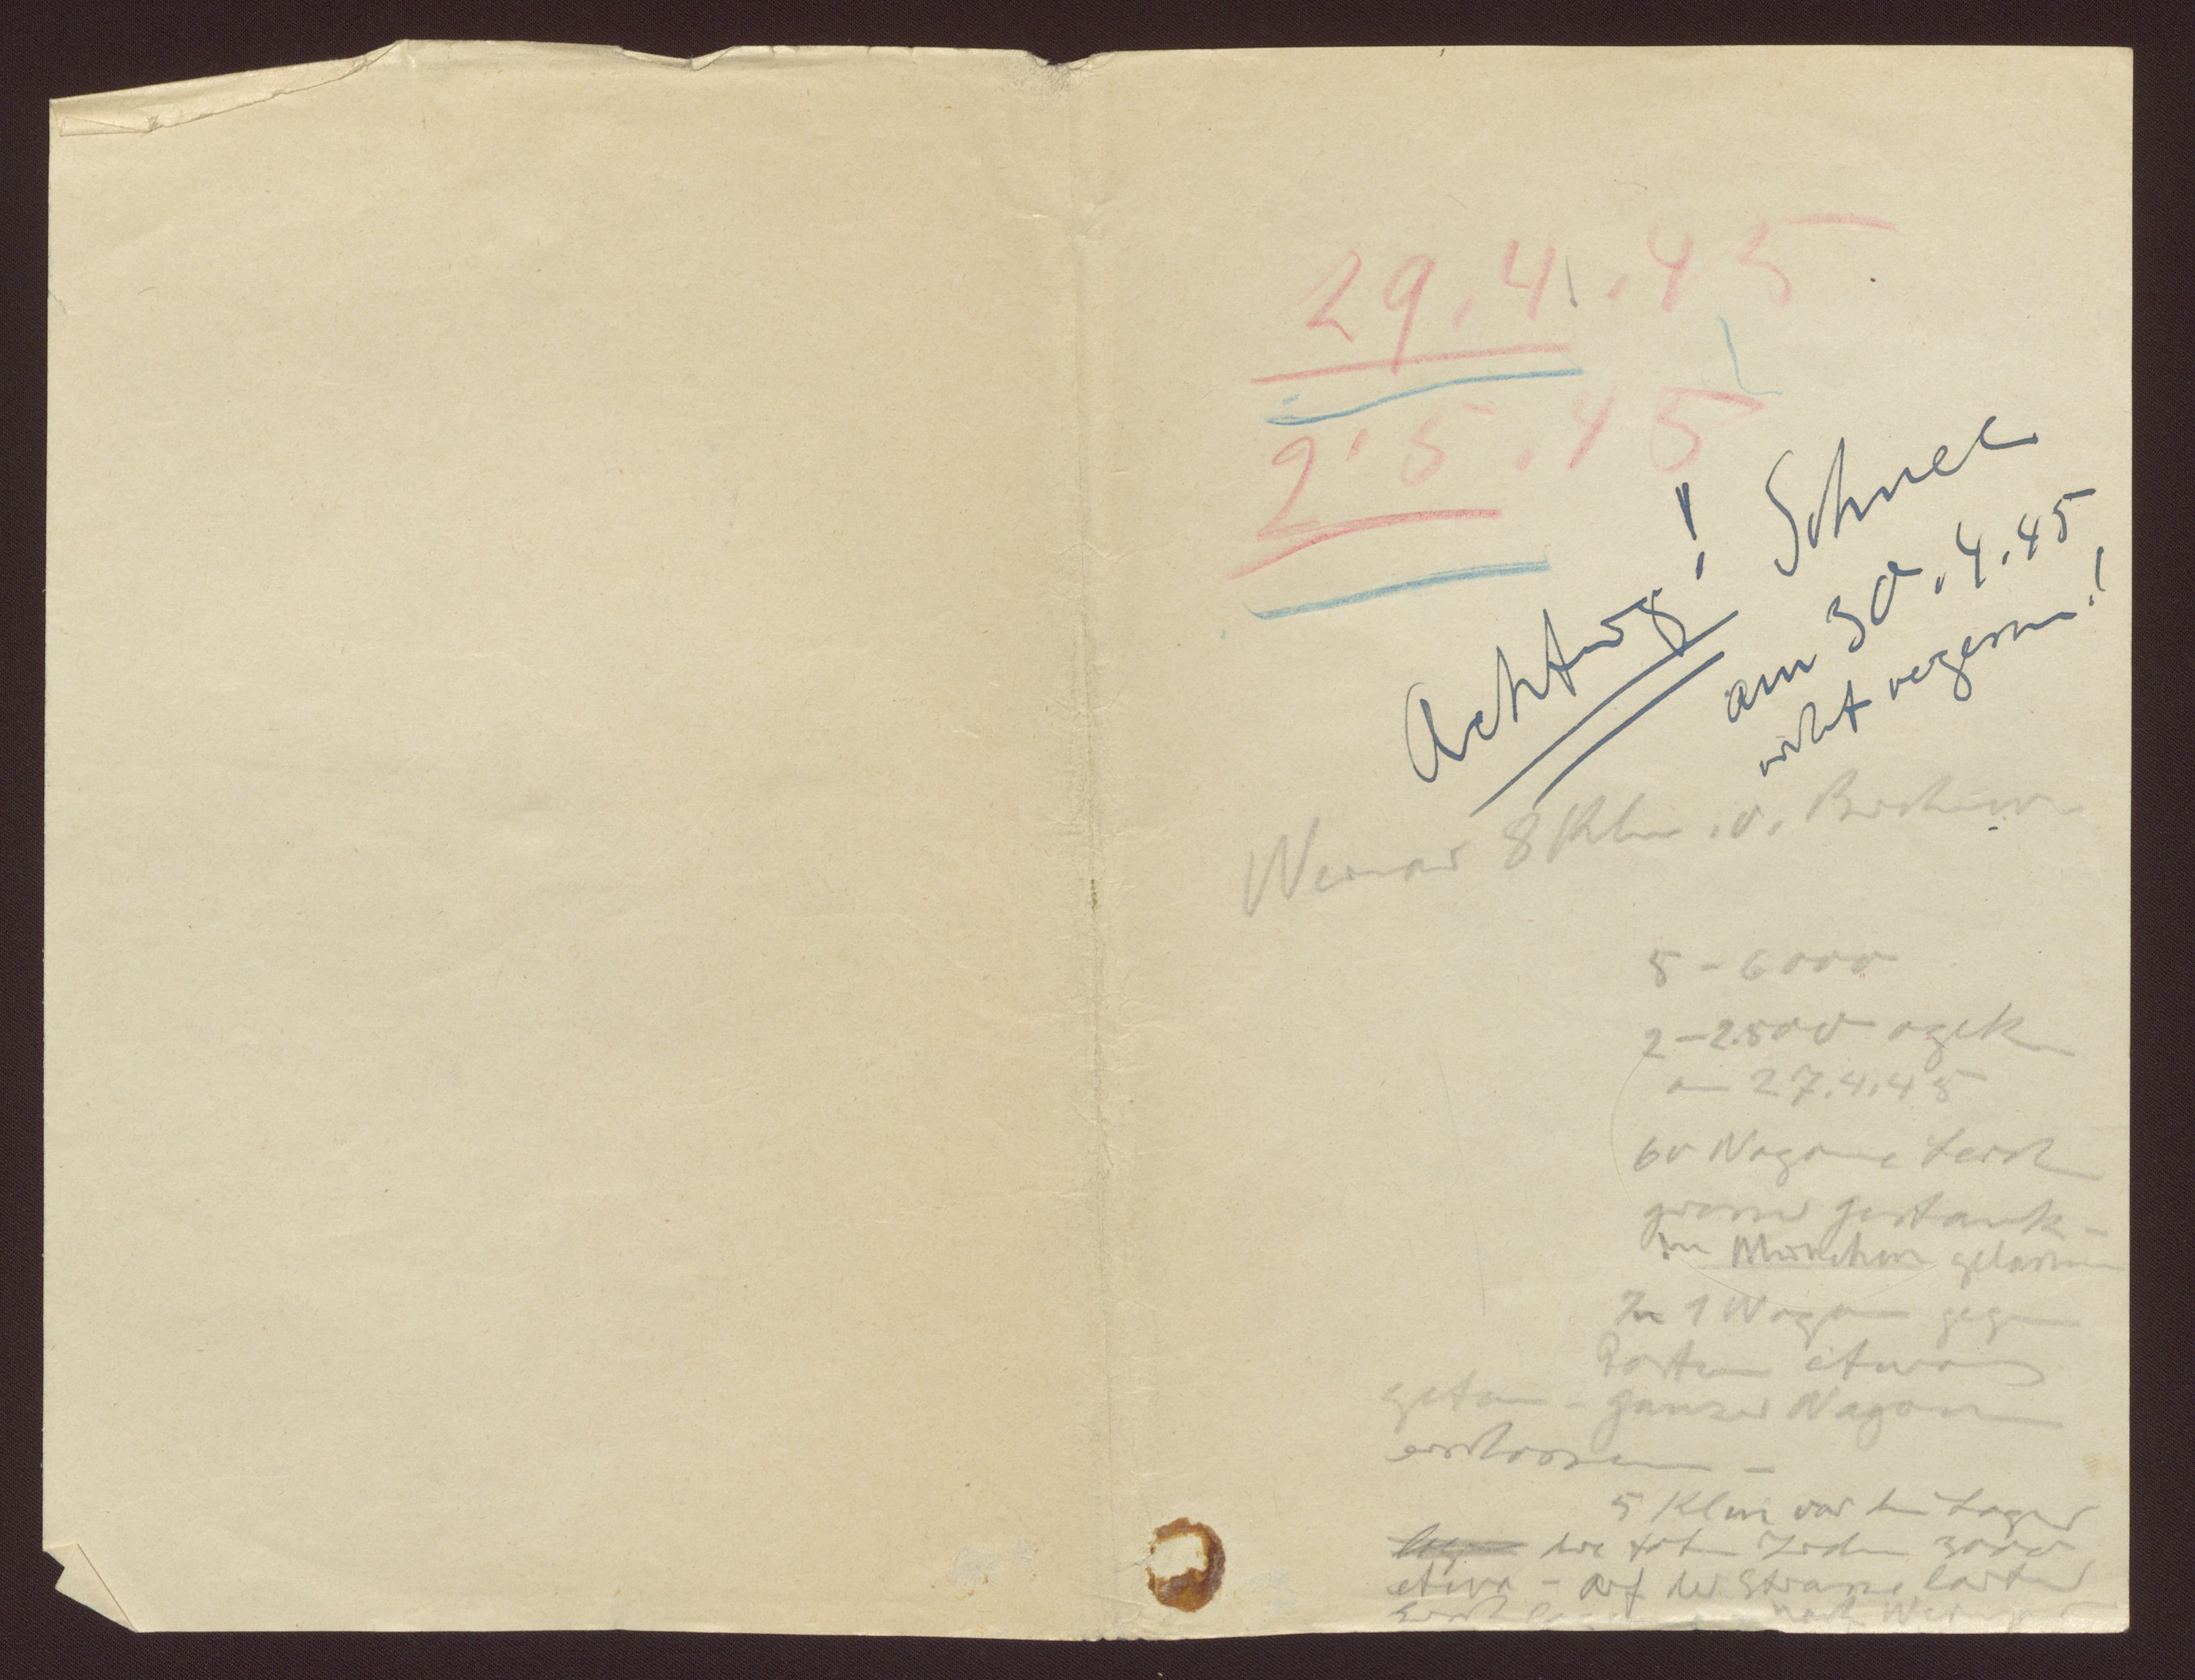 29.4.45
2.5.45
Achtung! Schnee
am 30.4.45
nicht vergessen!
Weimar 8 Klm. v.
5 - 6000
2 - 2500
am 27.4.45
60 Wagone
grosser Gestank -
in München gelassen
In 1 Wagon gegen
Posten etwas
getan - ganzer Wagon
erschossen -
5 Klm vor dem Lager
die toten Juden 3000
etwa - auf der Strasse lauter
nach